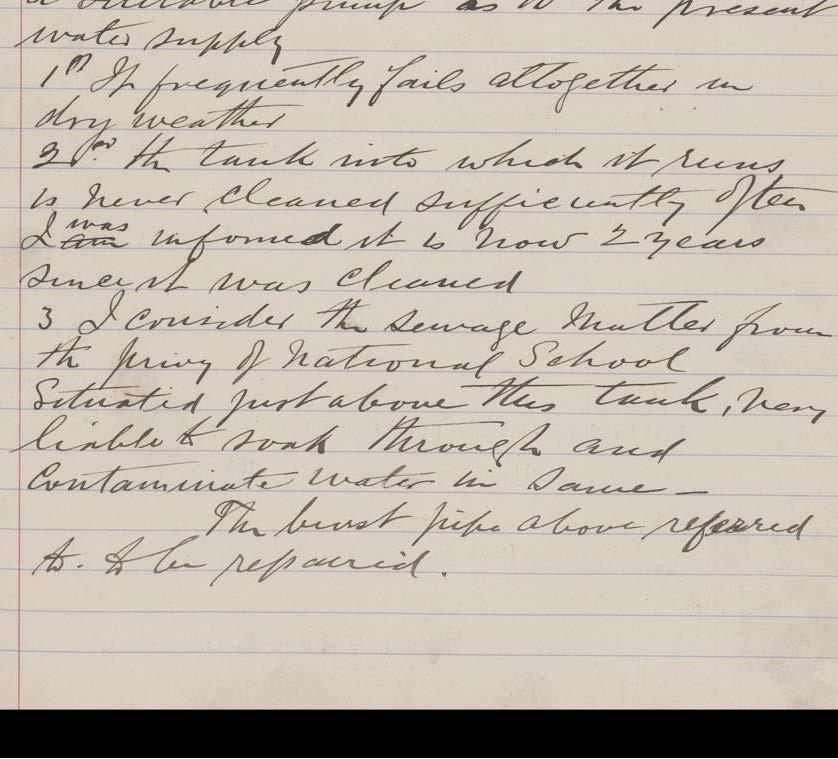 a suitable pump as to the present
water supply
1st It frequently fails altogether in
dry weather
2nd. the tank into which it runs
is never cleaned sufficiently often
I was am informed it is now 2 years
since it was cleaned
3 I consider the sewage matter from
the privy of National School
Situated just above this tank, very
liable to soak through and
contaminate water in same —
The burst pipe above referred
to. to be repaired.